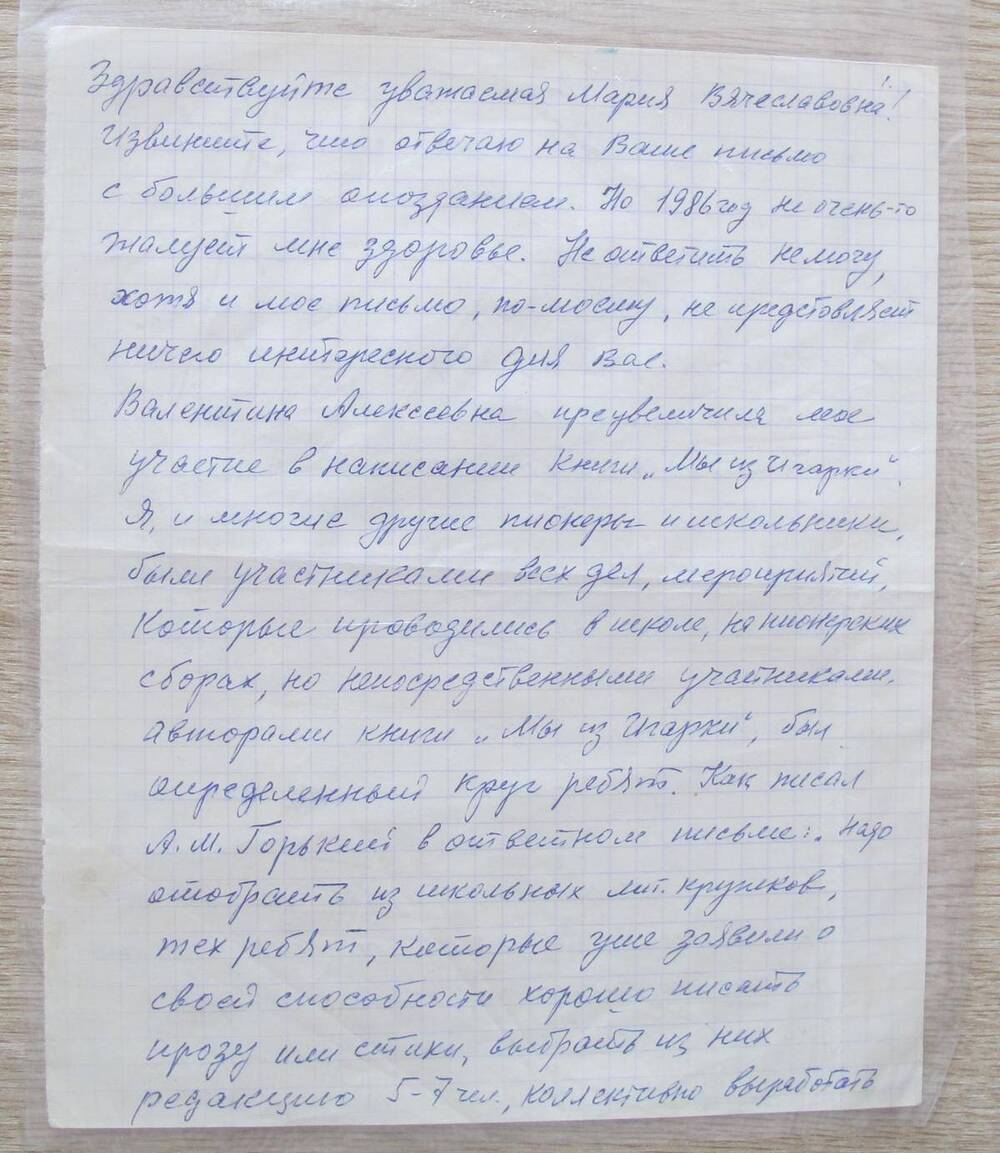 Здравствуйте уважаемая Мария Вячеславовна!
Извините, что отвечаю на Ваше письмо
с большим опозданием. Но 1986 год не очень-то
жалует мне здоровье. Не ответить не могу,
хотя и мое письмо, по-моему, не представляет
ничего интересного для Вас.
Валентина Алексеевна преувеличила мое
участие в написании книги „Мы из Игарки".
Я, и многие другие пионеры и школьники,
были участниками всех дел, мероприятий,
которые проводились в школе, на пионерских
сборах, но непосредственными участниками,
авторами книги „Мы из Игарки", был
определенный круг ребят. Как писал
А.М. Горький в ответном письме: „Надо
отобрать из школьных лит. кружков,
тех ребят, которые уже заявили о
своей способности хорошо писать
прозу или стихи, выбрать из них
редакцию 5-7 чел., коллективно выработать